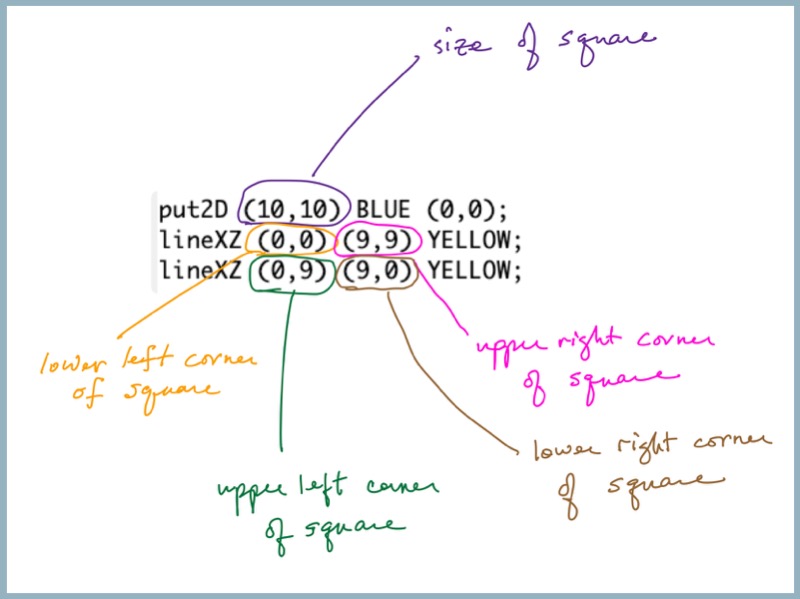 size of square
put2D (10,10) BLUE (0,0);
lineXZ (0,0) (9,9) YELLOW;
lineXZ (0,9) (9,0) YELLOW;
lower left corner
of square
upper right corner
of square
lower right corner
of square
upper left corner
of square